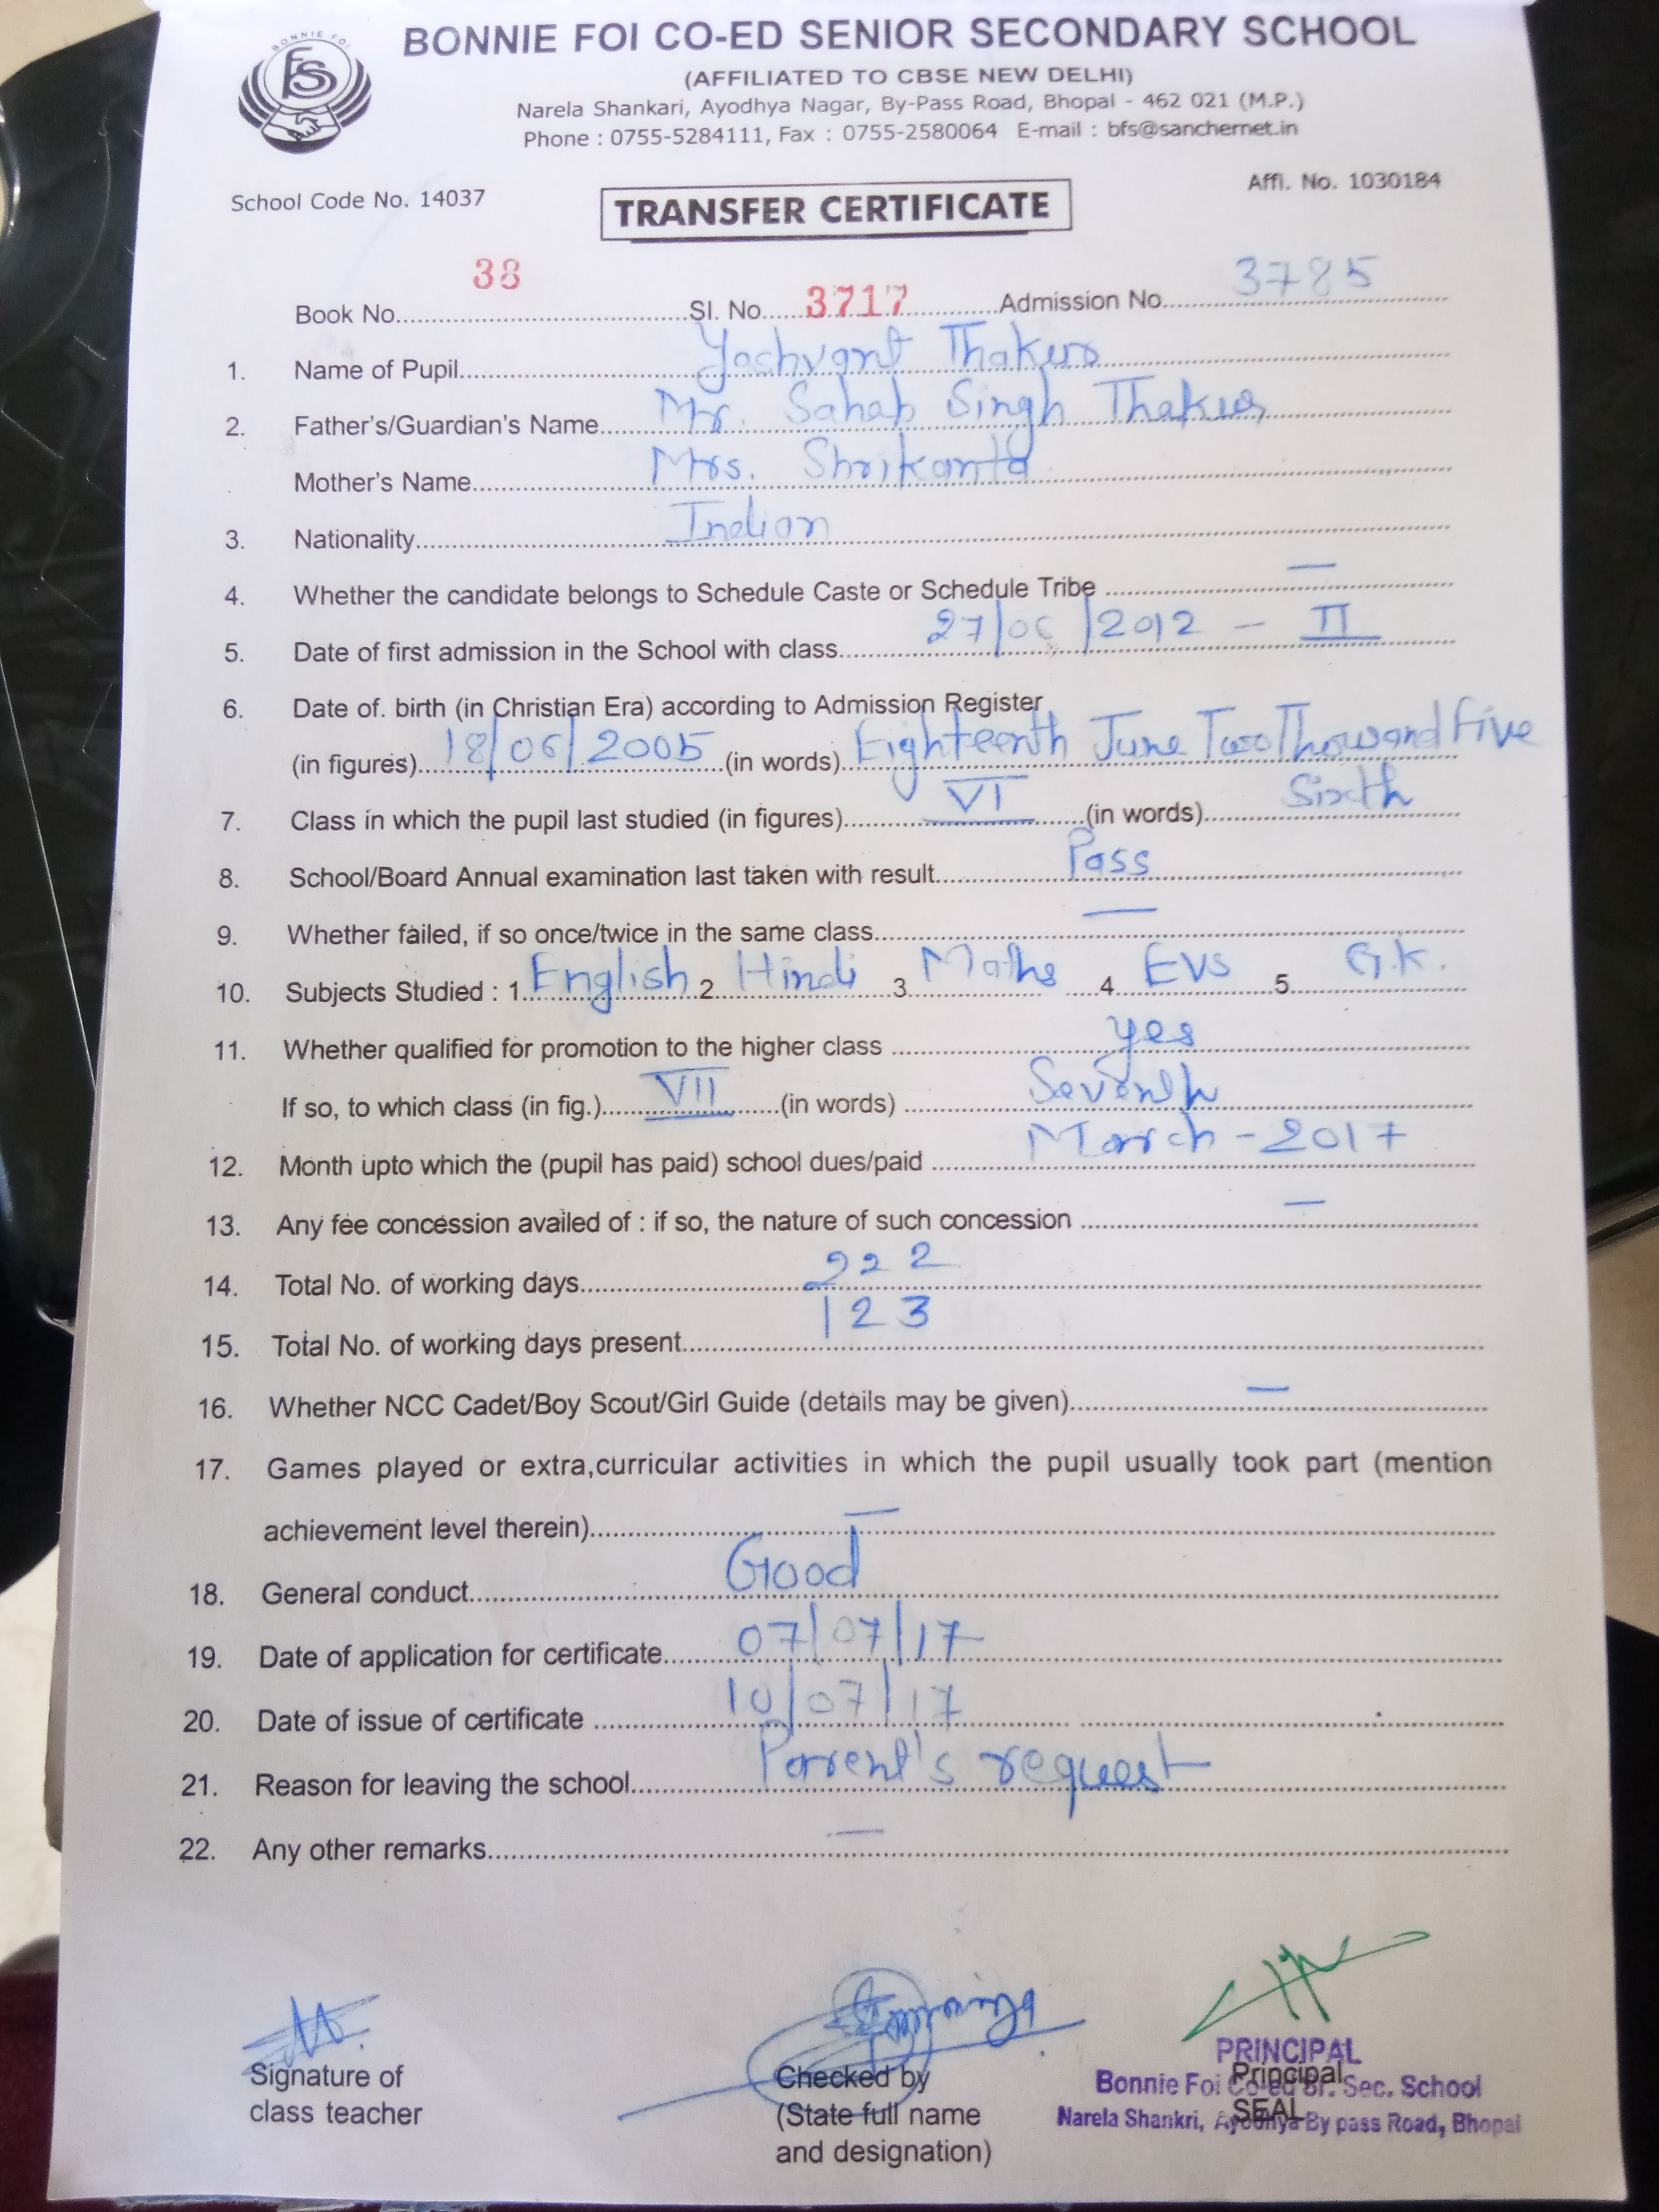 BONNIE FOI
BONNIE FOI CO-ED SENIOR SECONDARY SCHOOL
(AFFILIATED TO CBSE NEW DELHI)
Narela Shankari, Ayodhya Nagar, By-Pass Road, Bhopal - 462 021 (M.P.)
Phone : 0755-5284111, Fax : 0755-2580064 E-mail : bfs@sanchernet.in
School Code No. 14037
Affi. No. 1030184
TRANSFER CERTIFICATE
Book No. 38 Sl. No. 3717 Admission No. 3785
1. Name of Pupil Yashvant Thakur
2. Father's/Guardian's Name Mr. Sahab Singh Thakur
Mother's Name Mrs. Shrikanta
3. Nationality Indian
4. Whether the candidate belongs to Schedule Caste or Schedule Tribe —
5. Date of first admission in the School with class 27/06/2012 - II
6. Date of. birth (in Christian Era) according to Admission Register
(in figures) 18/06/2005 (in words) Eighteenth June Two Thousand Five
7. Class in which the pupil last studied (in figures) VI (in words) Sixth
8. School/Board Annual examination last taken with result Pass
9. Whether failed, if so once/twice in the same class —
10. Subjects Studied : 1. English 2. Hindi 3. Maths 4. EVS 5. G.K.
11. Whether qualified for promotion to the higher class yes
If so, to which class (in fig.) VII (in words) Seventh
12. Month upto which the (pupil has paid) school dues/paid March - 2017
13. Any fee concession availed of : if so, the nature of such concession —
14. Total No. of working days 222
15. Total No. of working days present 123
16. Whether NCC Cadet/Boy Scout/Girl Guide (details may be given) —
17. Games played or extra,curricular activities in which the pupil usually took part (mention
achievement level therein) —
18. General conduct Good
19. Date of application for certificate 07/07/17
20. Date of issue of certificate 10/07/17
21. Reason for leaving the school Parent's request
22. Any other remarks —
Signature of
class teacher
Checked by
(State full name
and designation)
PRINCIPAL
Principal
Bonnie Foi Co-ed Sr. Sec. School
SEAL
Narela Shankri, Ayodhya By pass Road, Bhopal